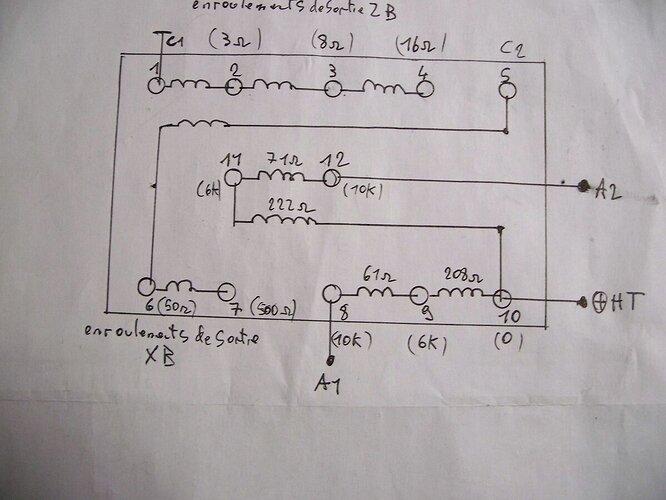 enroulements de Sortie ZB
C1 (3Ω) (8Ω) (16Ω) C2
1 2 3 4 5
11 71Ω 12
(6K) (10K) A2
222Ω
61Ω 208Ω
⊕HT
6 (50Ω) 7 (500Ω) 8 9 10
enroulements de Sortie (10K) (6K) (0)
XB
A1